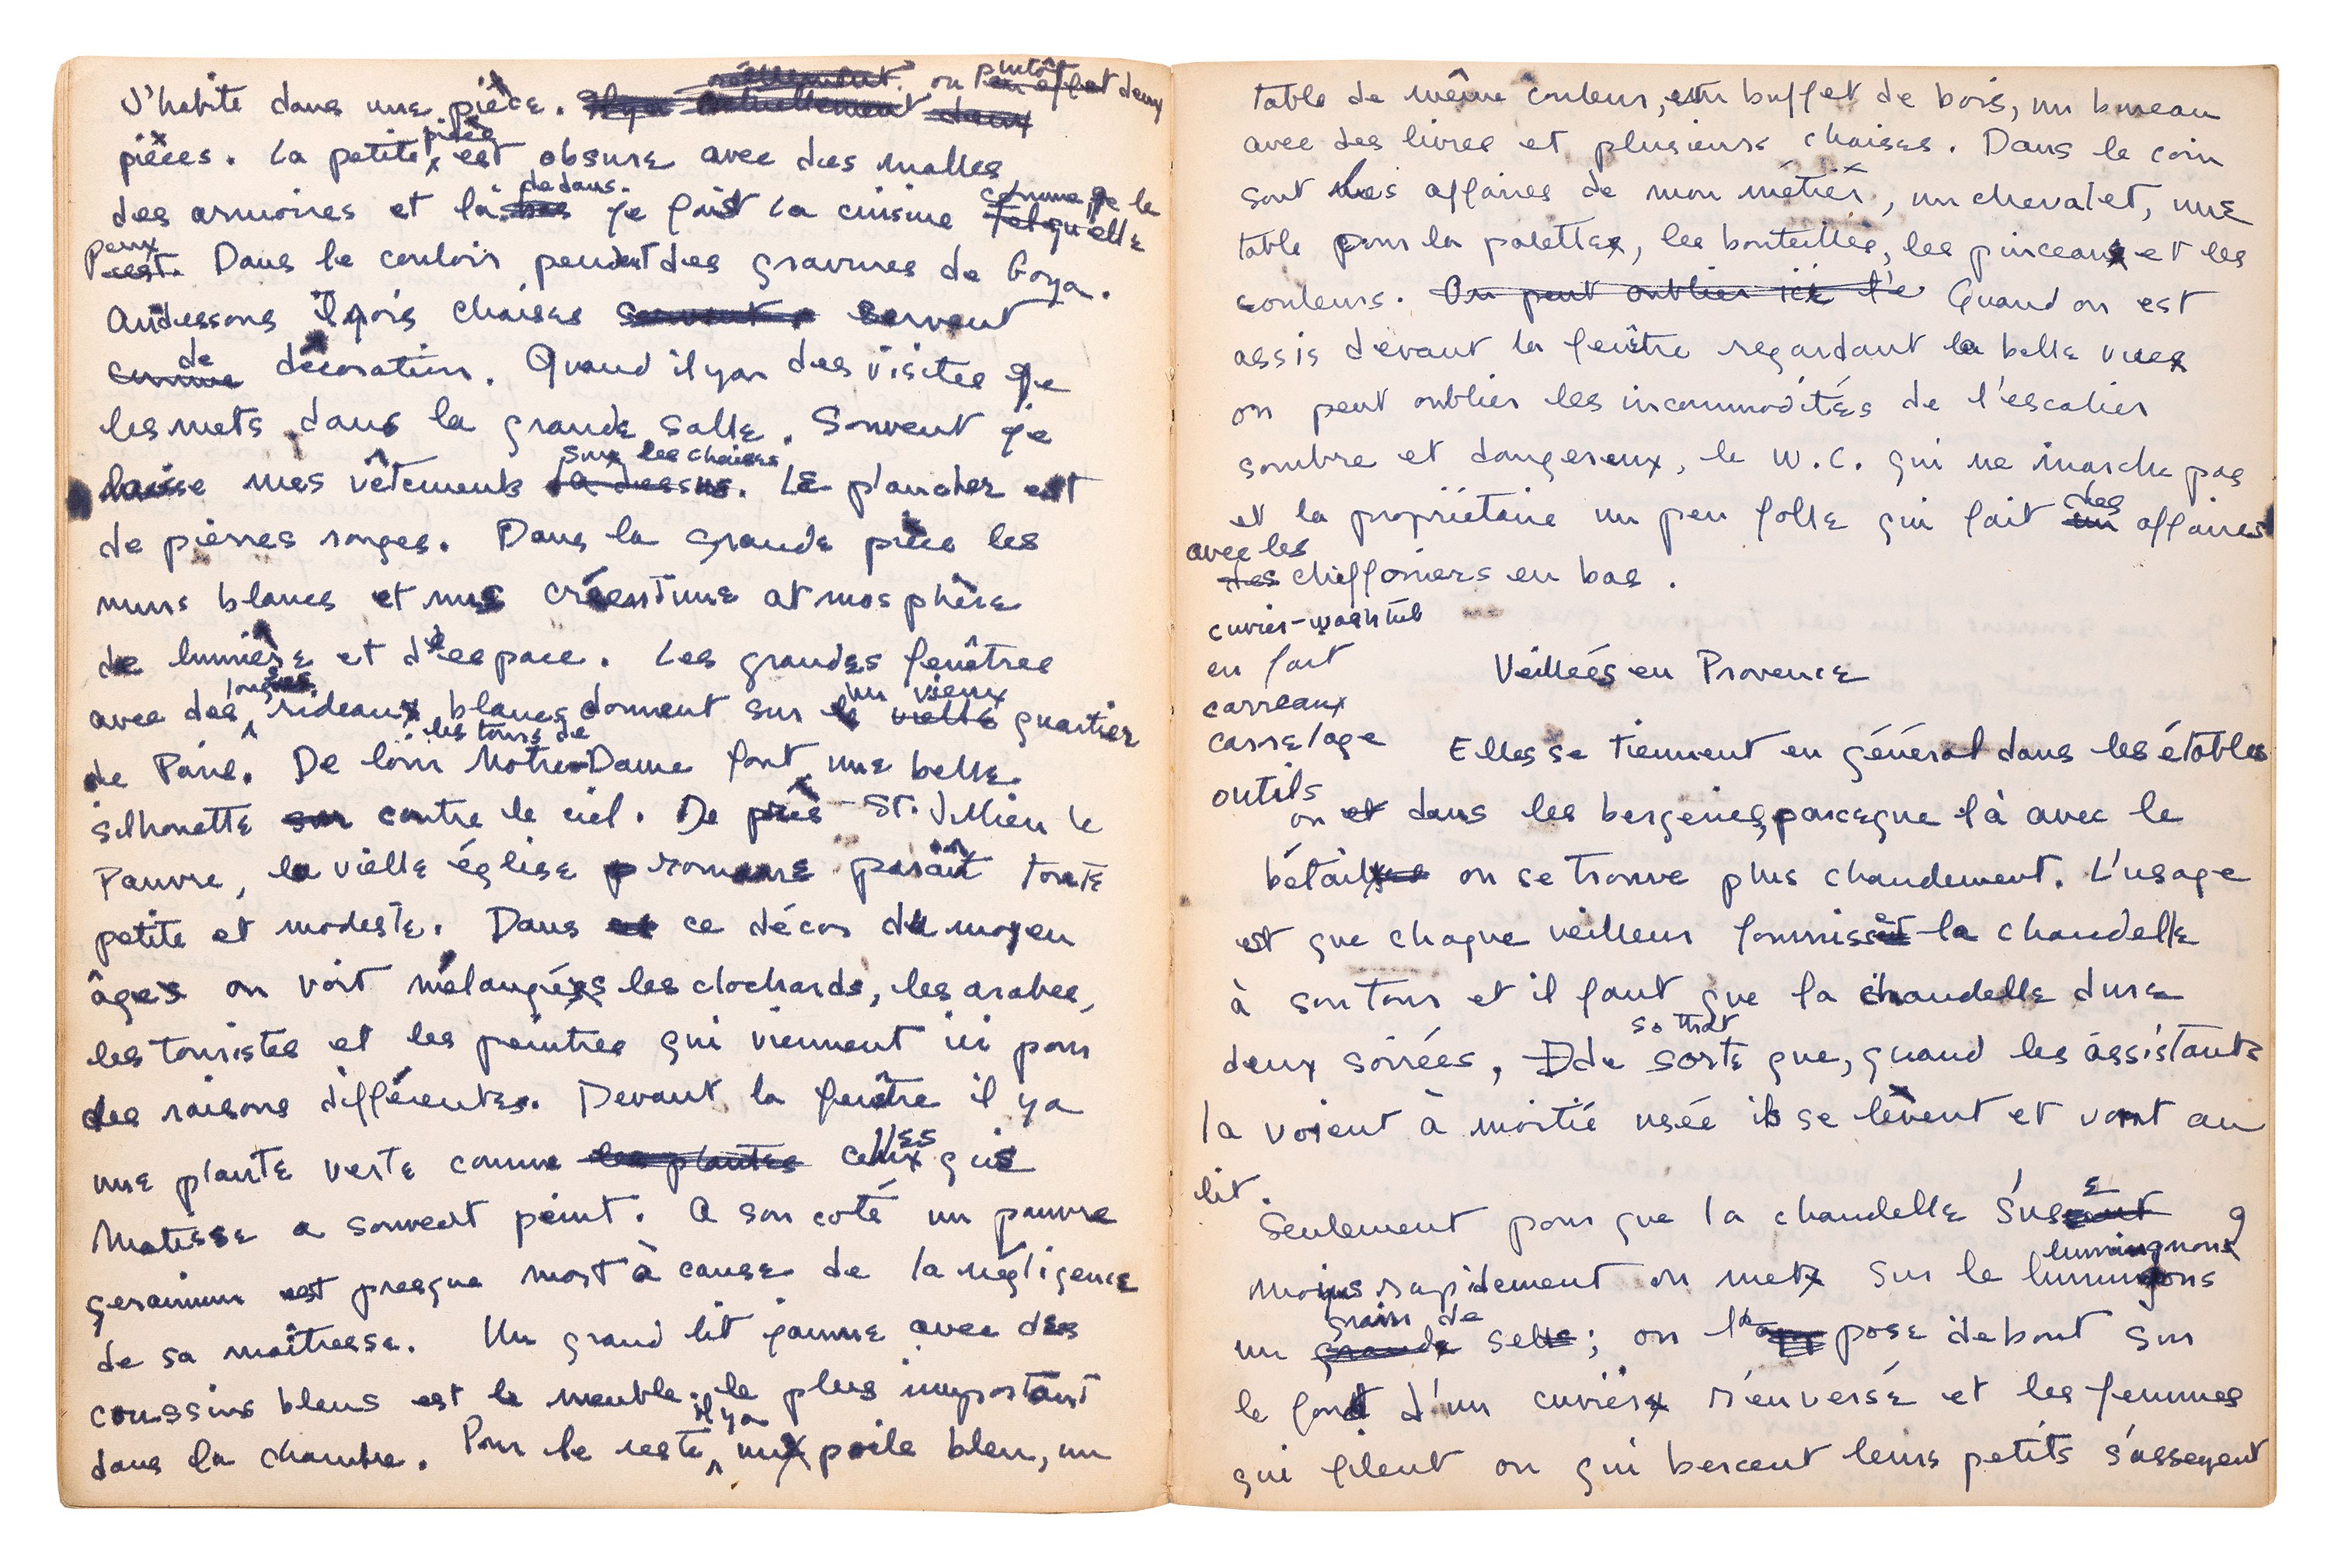 réellement. plutôt
J'habite dans une pièce. Il y a actuellement deux ou en effet deux
pièces. La petite pièce est obsure avec des malles,
des armoires et là dedans. je fait la cuisine comme je le
telquelle
peux
est. Dans le couloir pendent des gravures de Goya.
Audessous trois chaises servent servent
comme de décoration. Quand il y a des visites je
les mets dans la grande salle. Souvent je
laisse mes vêtements la dessus. sur les chaises Le plancher est
de pierres rouges. Dans la grande pièce les
murs blancs et nus créent une atmosphère
de lumière et d'espace. Les grandes fenêtres
avec des longues rideaux blancs donnent sur le vielle un vieux quartier
de Paris. De loin les tours de Notre-Dame font une belle
silhouette sur contre le ciel. De près St. Jullien le
Pauvre, la vielle église romane paraît toute
petite et modeste. Dans ce décor du moyen
âges on voit mélangées les clochards, les arabes,
les touristes et les peintres qui viennent ici pour
des raisons différentes. Devant la fenêtre il y a
une plante verte comme les plantes celles qui
Matisse a souvent peint. A son coté un pauvre
geranium est presque mort à cause de la négligence
de sa maîtresse. Un grand lit jaune avec des
coussins bleus est le meuble le plus important
dans la chambre. Pour le reste il y a un poile bleu, un
table de même couleur, un buffet de bois, un bureau
avec des livres et plusieurs chaises. Dans le coin
sont les affaires de mon métier, un chevalet, une
table pour la palette, les bouteilles, les pinceaux et les
couleurs. On peut oublier ici l'e Quand on est
assis devant la fenêtre regardant la belle vue
on peut oublier les incommodités de l'escalier
sombre et dangereux, le W.C. qui ne marche pas
et la propriétaire un peu folle qui fait un des affaires
avec les
des chiffoniers en bas.
cuvier-washtub
en fait
carreaux
carrelage
outils
Veillées en Provence
Elles se tiennent en général dans les étables
ou et dans les bergeries, parceque là avec le
bétail on se trouve plus chaudement. L'usage
est que chaque veilleur fournisse la chandelle
à son tour et il faut que la chandelle dure
so that
deux soirées, D de sorte que, quand les assistants
la voient à moitié usée ils se lèvent et vont au
lit.
Seulement pour que la chandelle s'use
lumignons
moins rapidement on met sur le
un grande grain de sel; on la pose debout sur
le fond d'un cuvier renversé et les femmes
qui filent ou qui bercent leurs petits s'asseyent